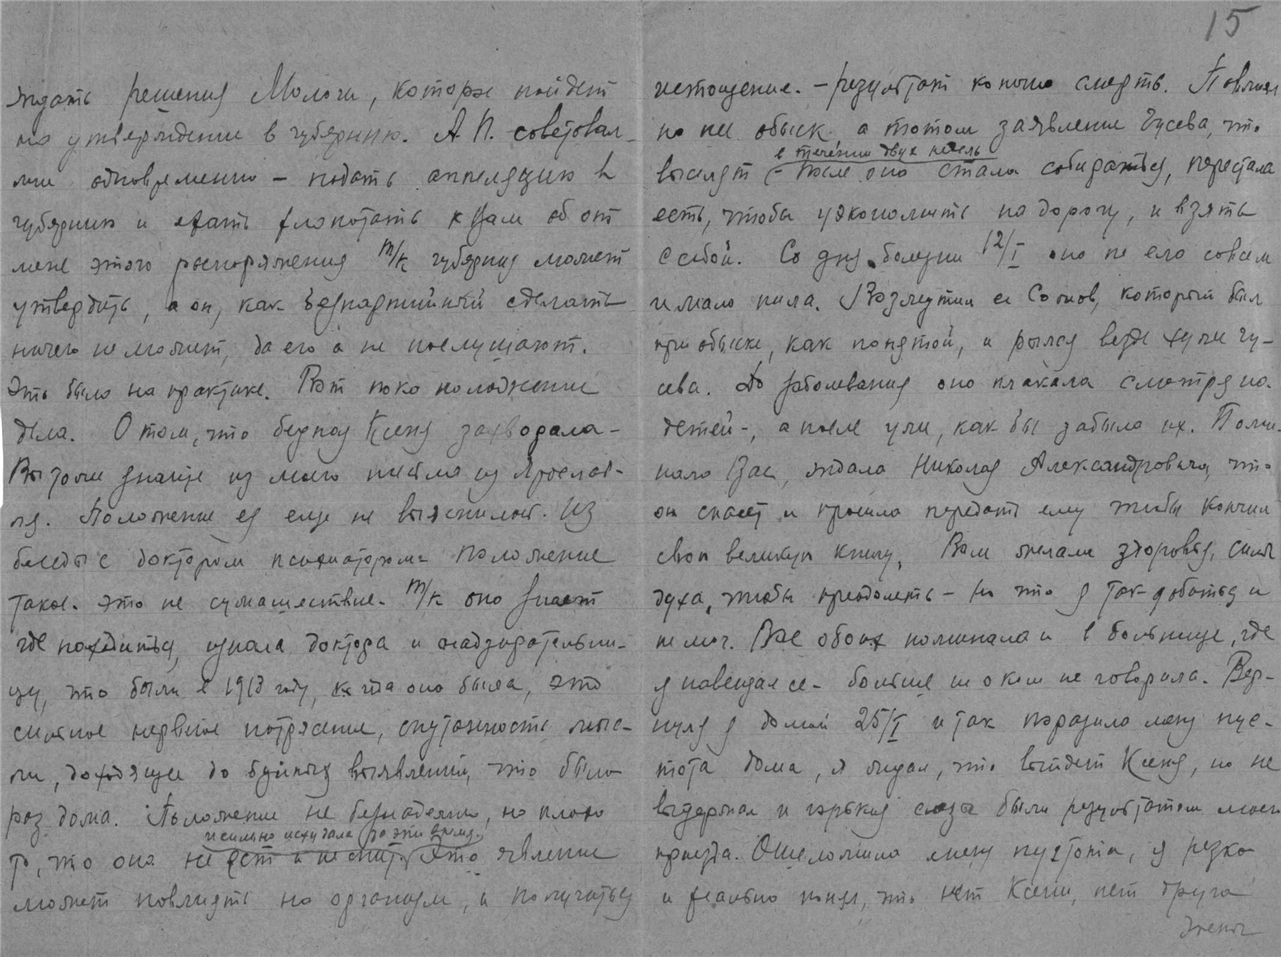 15
ждать решения Мологи, которое пойдет
на утверждение в губернию. А. П. советовал-
ли одновременно – подать аппеляцию в
губернию и ехать хлопотать к Вам об от
мене этого распоряжения т/к губерния может
утвердить, а он, как безпартийный сделать
ничего не может, да его а не послушают.
Это было на практике. Вот пока положение
дела. О том, что бедная Ксеня захворала –
Вы уже знаете из моего письма из Ярослав-
ля. Положение ея еще не выяснилось. Из
беседы с доктором психиатором положение
такое. это не сумашествие. т/к она знает
где находиться, узнала доктора и надзирательни-
цу, что были в 1918 году, когда она была, это
сильное нервное потрясение, спутанность мыс-
ли, доходящее до буйных выявлений, что было
раз дома. Положение не безнадежно, но плохо
и сильно исхудала за эти время.
то, что она не ест и не спит. Это явление
может повлиять на организм, и получиться
истощение. – результат конечно смерть. Повлиял
на нее обыск а потом заявление Гусева, что
в течении двух недель
выселят – после она стала собираться, перестала
есть, чтобы сэкономить на дорогу, и взять
с собой. Со дня болезни 12/I она не ела совсем
и мало пила. Возмутил ее Соснов, который был
при обыске, как понятой, и рылся везде хуже Гу-
сева. До заболевания она плакала смотря на
детей –, а после ужи, как бы забыла их. Поми-
нала Вас, ждала Николая Александровича, что
он спасет и просила передать ему чтобы кончил
свою великую книгу, Вам желала здоровья, силы
духа, чтобы преодолеть – но что я так добиться и
не мог. Вас обоих поминала и в больнице, где
я навещал ее – больше ни о ком не говорила. Вер-
нулся я домой 25/I и так поразила меня пус-
тота дома, я ждал, что выйдет Ксеня, но не
выдержал и горькия слезы были результатом моего
приезда. Ошеломила меня пустота, я резко
и реально понял, что нет Ксени, нет друга
жены